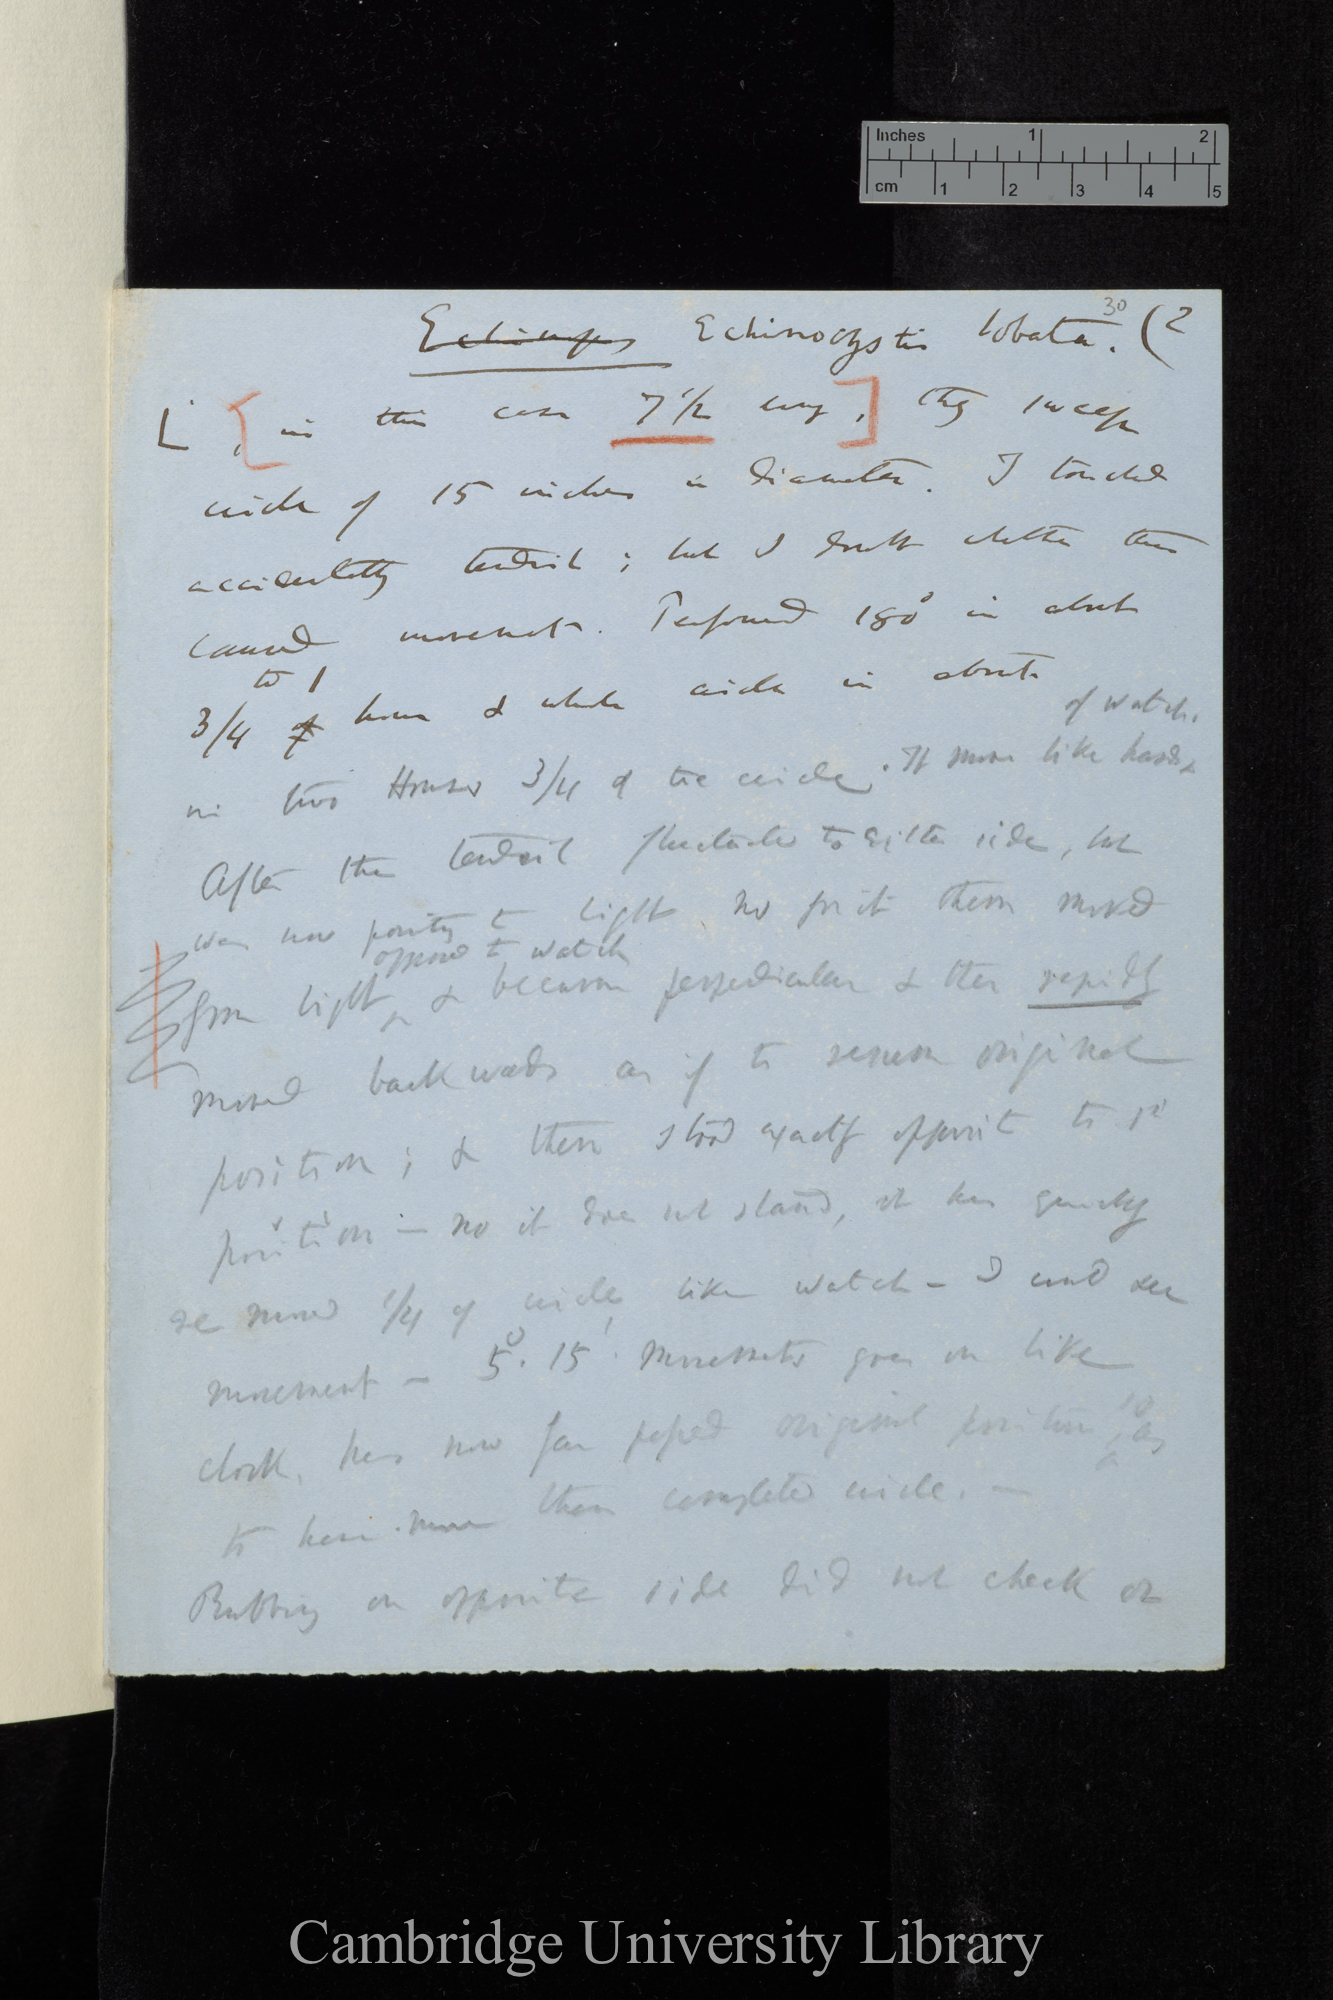 Inches 1 2
cm 1 2 3 4 5
30
Echinops Echinocystis lobata. (2
[, in this case 7 1/2 long,] they sweep
circle of 15 inches in diameter. I touched
accidentally tendril; but I doubt whether this
caused movement. Performed 180° in about
to 1
3/4 of hour & whole circle in about
of watch.
in two Hours 3/4 of the circle. It move like hands
After the tendril fluctuates to either side, but
was now pointing to light, no for it then moved
opposed to watch
from light & became perpendicular & then rapidly
moved backwards as if to resume original
position; & then stood exactly opposite to 1st
position — no it does not stand, it has quickly
moved 1/4 of circle, like watch — I could see
movement — 5°. 15'. Movements goes on like
clock, has now far passed original position, so as
to have more than completed circle. —
Rubbing on opposite side did not check or
Cambridge University Library